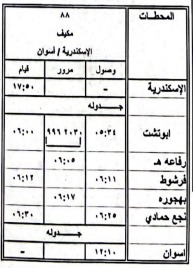 المحطات
٨٨
مكيف
الإسكندرية / أسوان
وصول مرور قيام
الإسكندرية - ١٧:٥٠
جـــــدوله
ابوتشت ٠٥:٣٤ ٢٠٣٠ ٩٩٦ ٠٦:٠٠
رفاعه هـ ٠٦:٠٥
فرشوط ٠٦:١١ ٠٦:١٢
بهجوره ٠٦:١٧
نجع حمادي ٠٦:٢٥ ٠٦:٣٠
جـــــدوله
أسوان ١٢:١٠ -